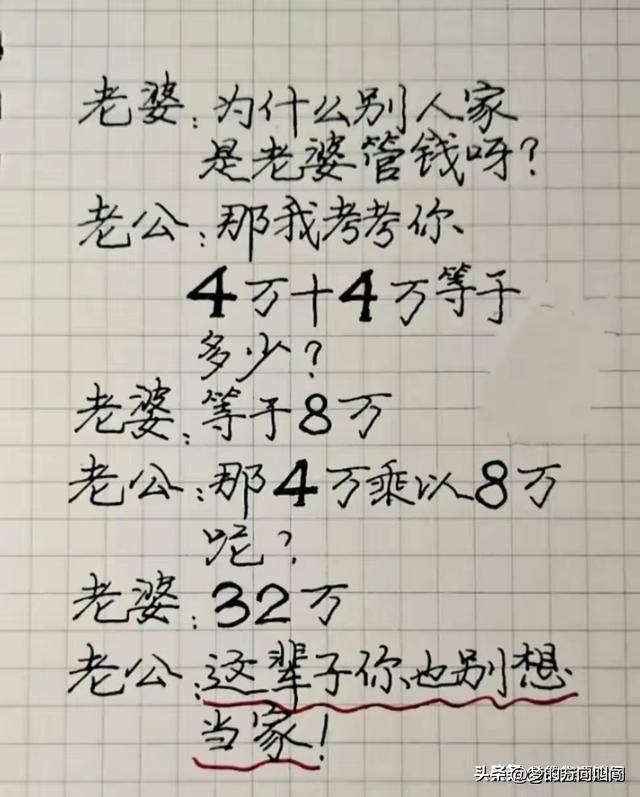 老婆:为什么别人家
是老婆管钱呀?
老公:那我考考你、
4万+4万等于
多少?
老婆:等于8万
老公:那4万乘以8万
呢?
老婆:32万
老公:这辈子你也别想
当家!
头条@梦的方向四周